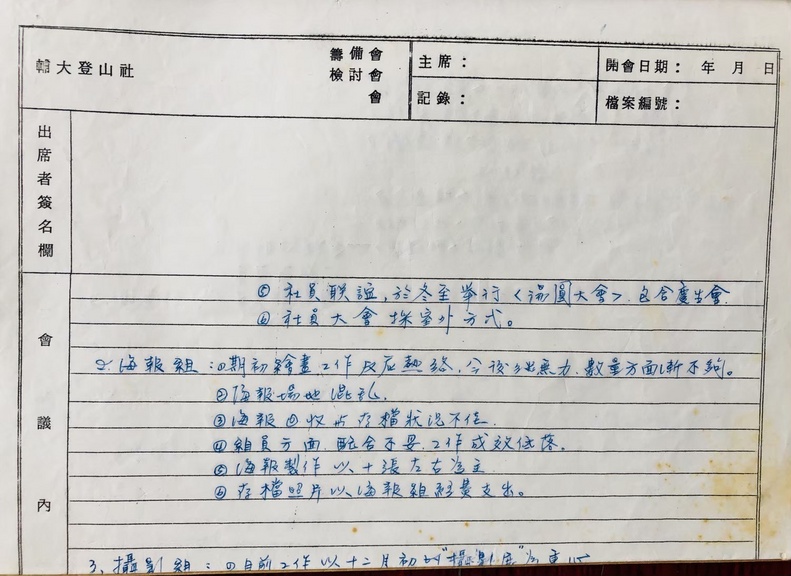 輔大登山社
籌備會
檢討會
會
主席：
記錄：
開會日期： 年 月 日
檔案編號：
出席者簽名欄
會議內
⑤ 社員联誼，於冬至舉行〈湯圓大會〉. 包含慶生會
⑥ 社員大會採室外方式。
2. 海報組：①期初繪畫工作反应熱絡，今後 無力. 數量方面漸不夠。
②海報場地混乱.
③海報回收占存檔狀況不佳.
④組員方面 配合不妥. 工作成效低落。
⑤海報製作以十張左右為主
⑥存檔照片以海報組經費支出。
3、攝影組：①目前工作以十二月初的"攝影展"為重心